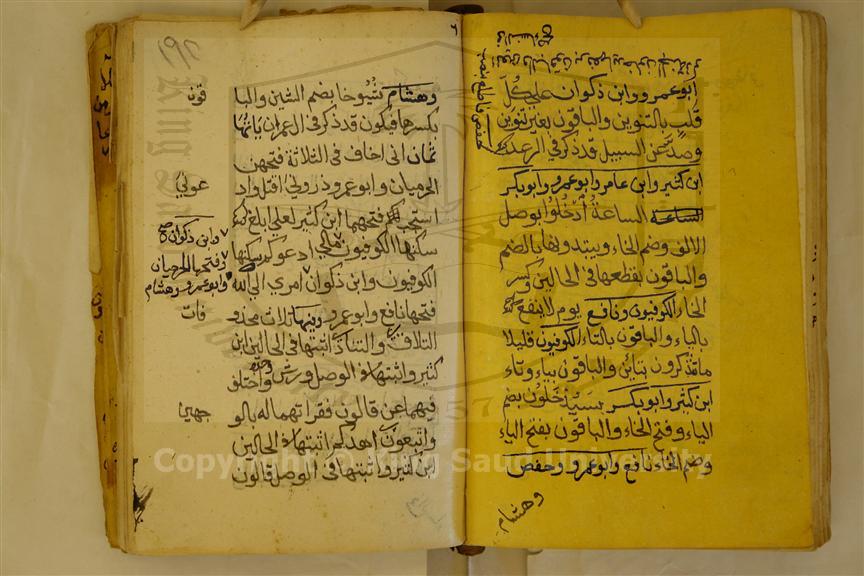 ابو عمرو وابن ذكوان على كل
قلب بالتنوين والباقون بغير تنوين
وصد عن السبيل قد ذكر في الرعد
ابن كثير وابن عامر وابو عمرو وابو بكر
الساعة الساعة أدخلوا بوصل
الالف وضم الخاء ويبتدونها بالضم
والباقون بقطعها في الحالين وكسر
الخاء الكوفيون ونافع يوم لا ينفع
بالياء والباقون بالتاء الكوفيون قليلا
ما تتذكرون بتائين والباقون بياء وتاء
ابن كثير وابو بكر سيدخلون بضم
الياء وفتح الخاء والباقون بفتح الياء
وضم الخاء نافع وابو عمرو وحفص
وهشام
وهشام شيوخا بضم الشين والبا
بكسرها فيكون قد ذكر في ال عمران ياتها
ثمان اني اخاف في الثلاثة فتحهن
الحرميان وابو عمرو ذروني اقتل واد
استجب لكم فتحهما ابن كثير لعلي ابلغ
سكنها الكوفيون مالي ادعوكم سكنها
الكوفيون وابن ذكوان امري الى الله
فتحها نافع وابو عمرو وفيها ثلاث محذو
التلاق والتناد اثبتها في الحالين ابن
كثير واثبتها في الوصل ورش وحده واختلف
فيهما عن قالون فقراتهما له بالو
واتبعون اهدكم اثبتها في الحالين
ابن كثير واثبتها في الوصل قالون
وابن ذكوان
وفتحها الحرميان
وابو عمرو وهشام
Copyright © King Saud University